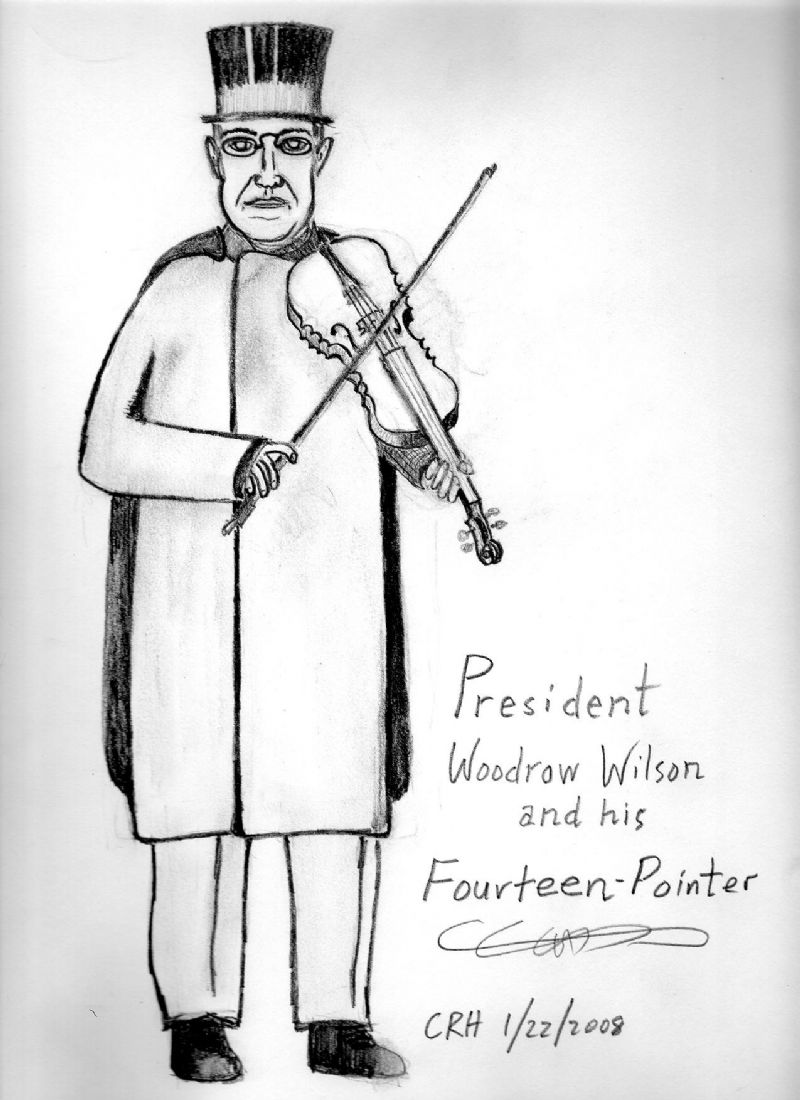 President
Woodrow Wilson
and his
Fourteen-Pointer
CRH 1/22/2008